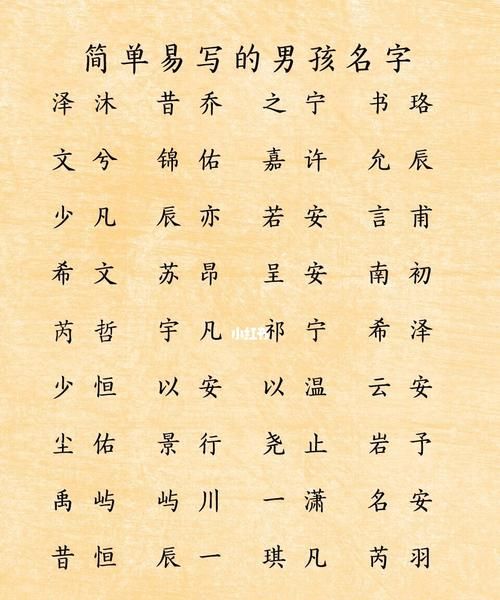 简单易写的男孩名字
泽沐 昔乔 之宁 书珞
文兮 锦佑 嘉许 允辰
少凡 辰亦 若安 言甫
希文 苏昂 呈安 南初
芮哲 宇凡 小红书 祁宁 希泽
少恒 以安 以温 云安
尘佑 景行 尧止 岩予
禹屿 屿川 一潇 名安
昔恒 辰一 琪凡 芮羽